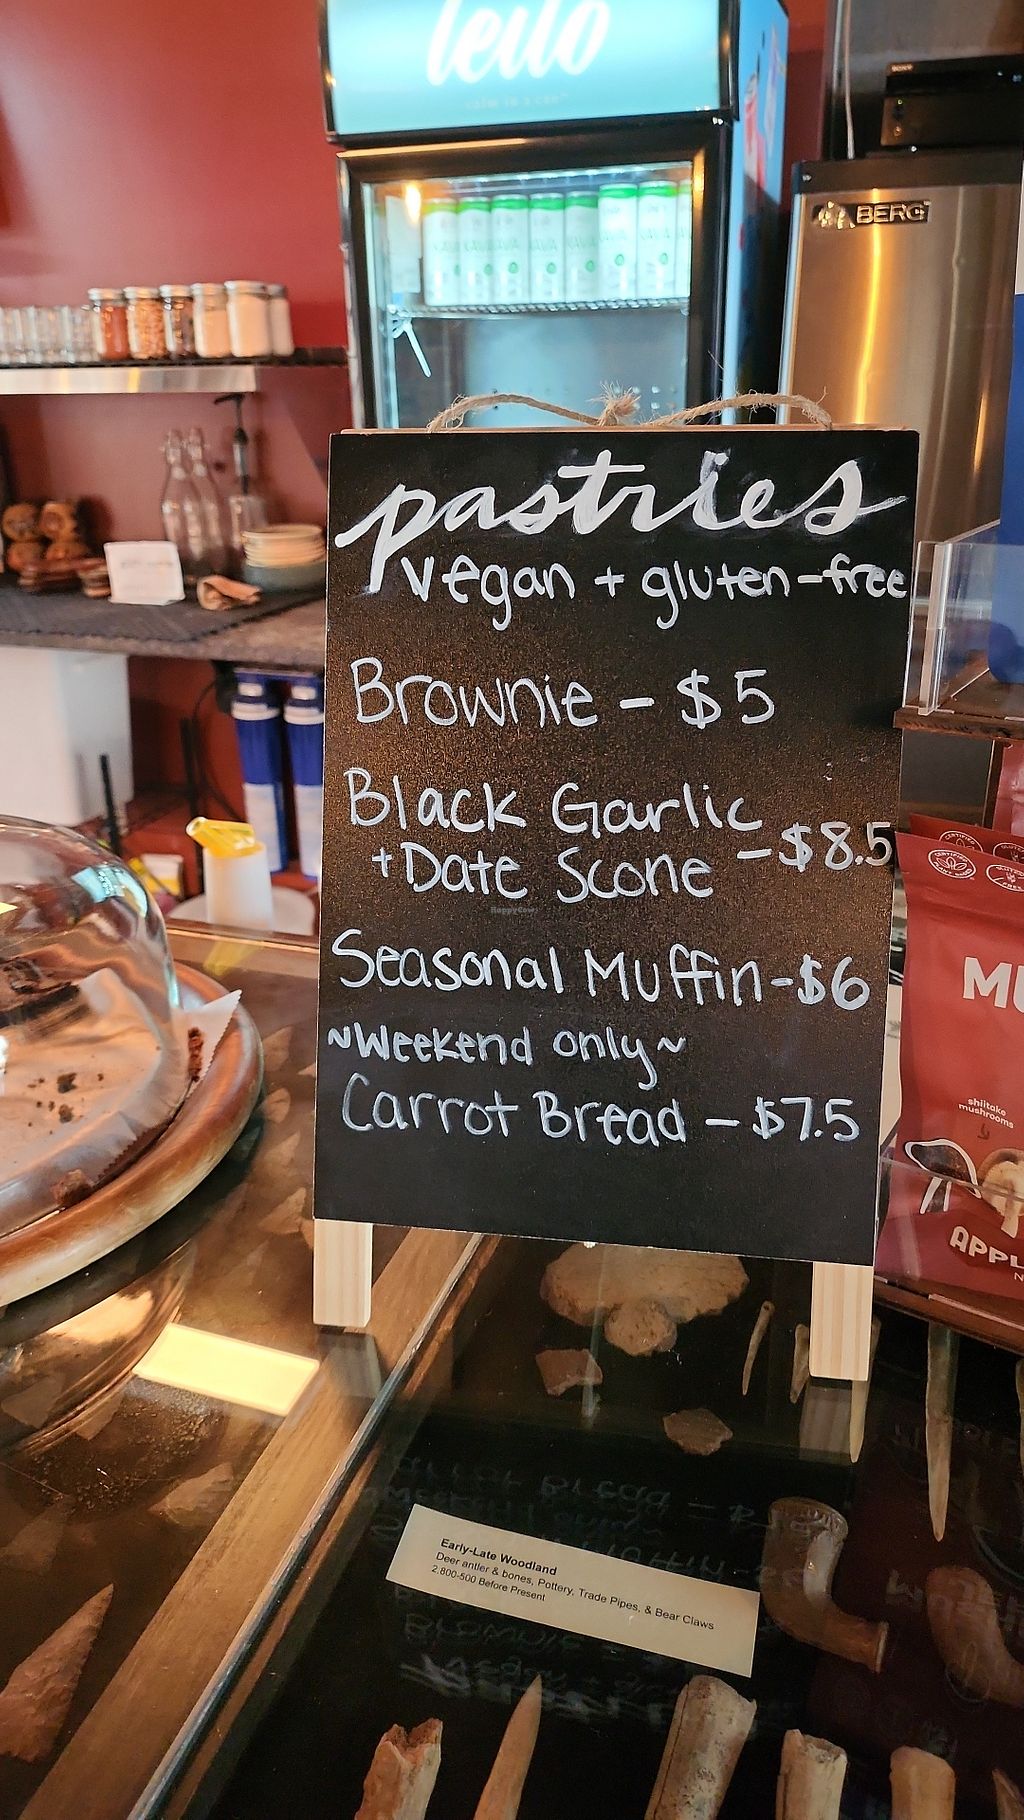 leilo
calm in a can
KAVA KAVA KAVA
ABERG
pastries
vegan + gluten-free
Brownie - $5
Black Garlic
+Date Scone - $8.5
Seasonal Muffin - $6
~Weekend only~
Carrot Bread - $7.5
HappyCow
MU
shiitake
mushrooms
APPL
Early-Late Woodland
Deer antler & bones, Pottery, Trade Pipes, & Bear Claws
2,800-500 Before Present